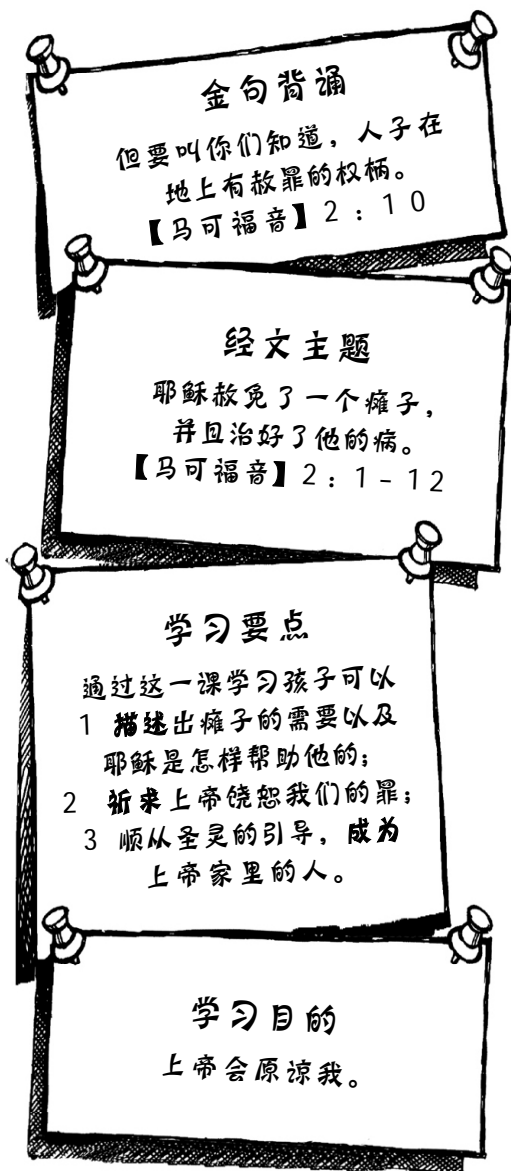 金句背诵
但要叫你们知道，人子在
地上有赦罪的权柄。
【马可福音】2：10
经文主题
耶稣赦免了一个瘫子，
并且治好了他的病。
【马可福音】2：1-12
学习要点
通过这一课学习孩子可以
1 描述出瘫子的需要以及
耶稣是怎样帮助他的；
2 祈求上帝饶恕我们的罪；
3 顺从圣灵的引导，成为
上帝家里的人。
学习目的
上帝会原谅我。